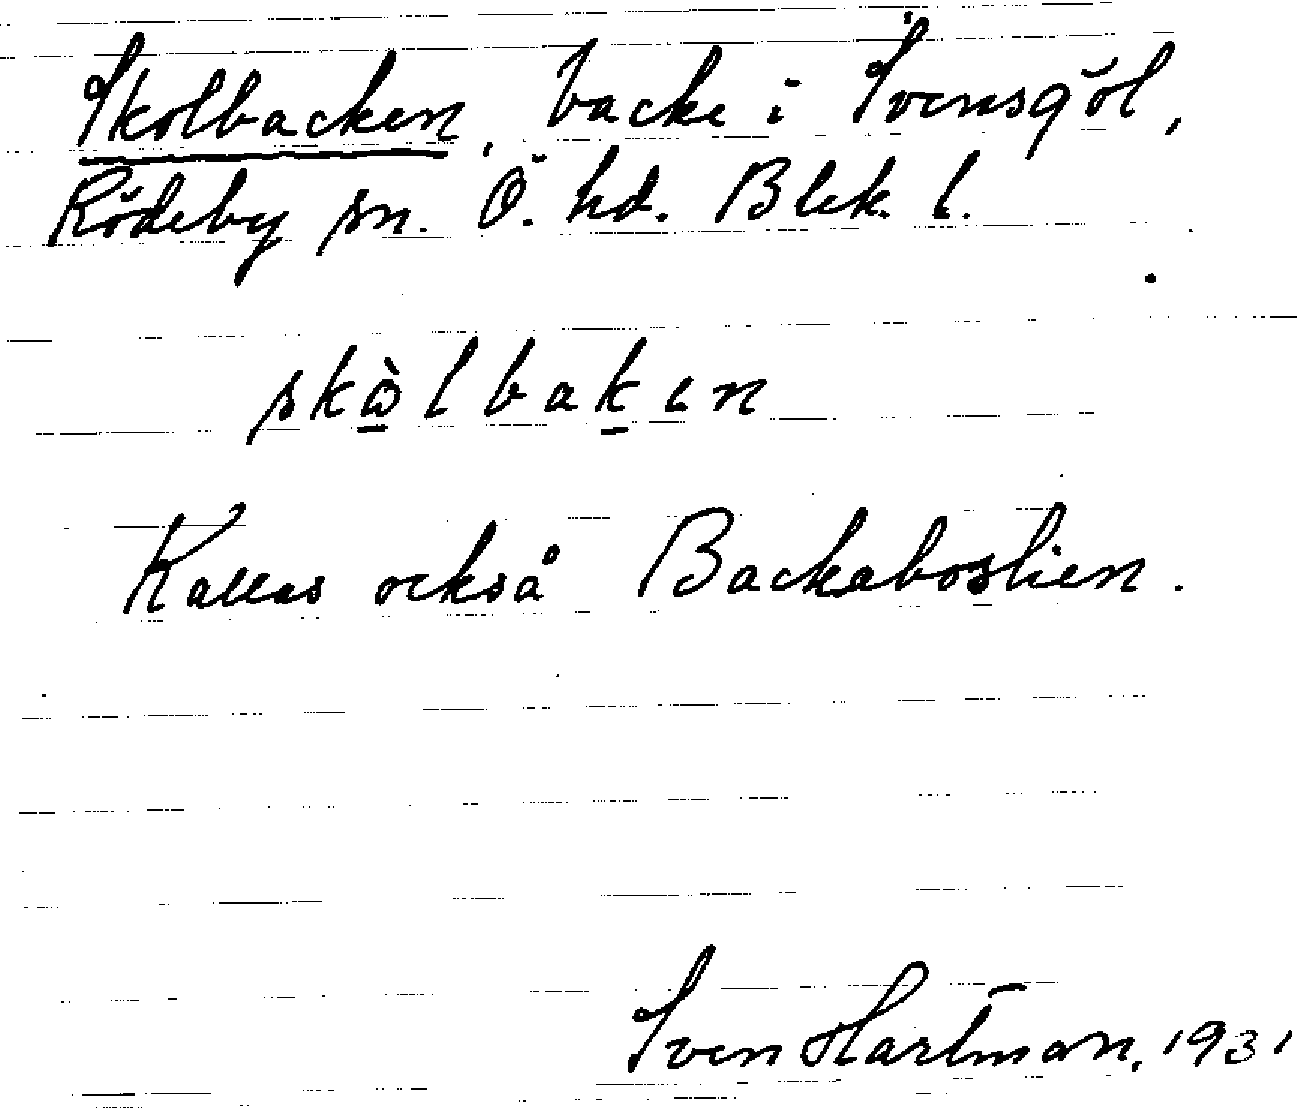 Skolbacken, backe i Svensgöl,
Rödeby sn. Ö. hd. Blek. l.
skὼlbakın
Kallas också Backaboslien.
Sven Hartman, 1931